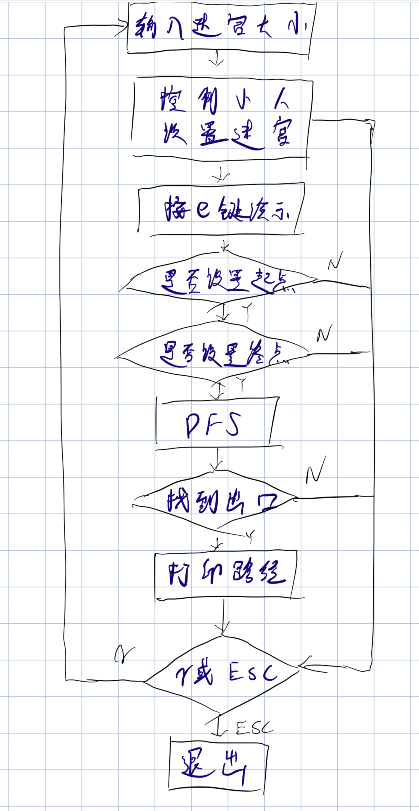 输入迷宫大小
控制小人
设置迷宫
按e键演示
是否设置起点
N
Y
是否设置终点
N
Y
DFS
找到出口
N
Y
打印路径
r
r或ESC
ESC
退出